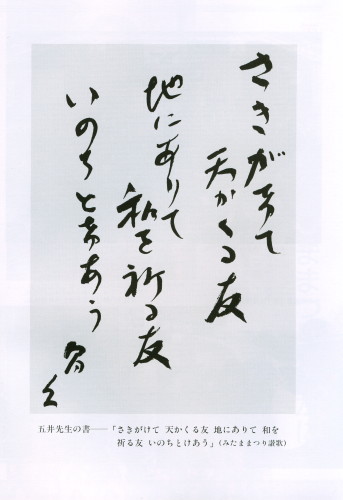 さきがけて
天かくる友
地にありて
和を祈る友
いのちとけあう
昌久
五井先生の書――「さきがけて 天かくる友 地にありて 和を
祈る友 いのちとけあう」(みたままつり讃歌)